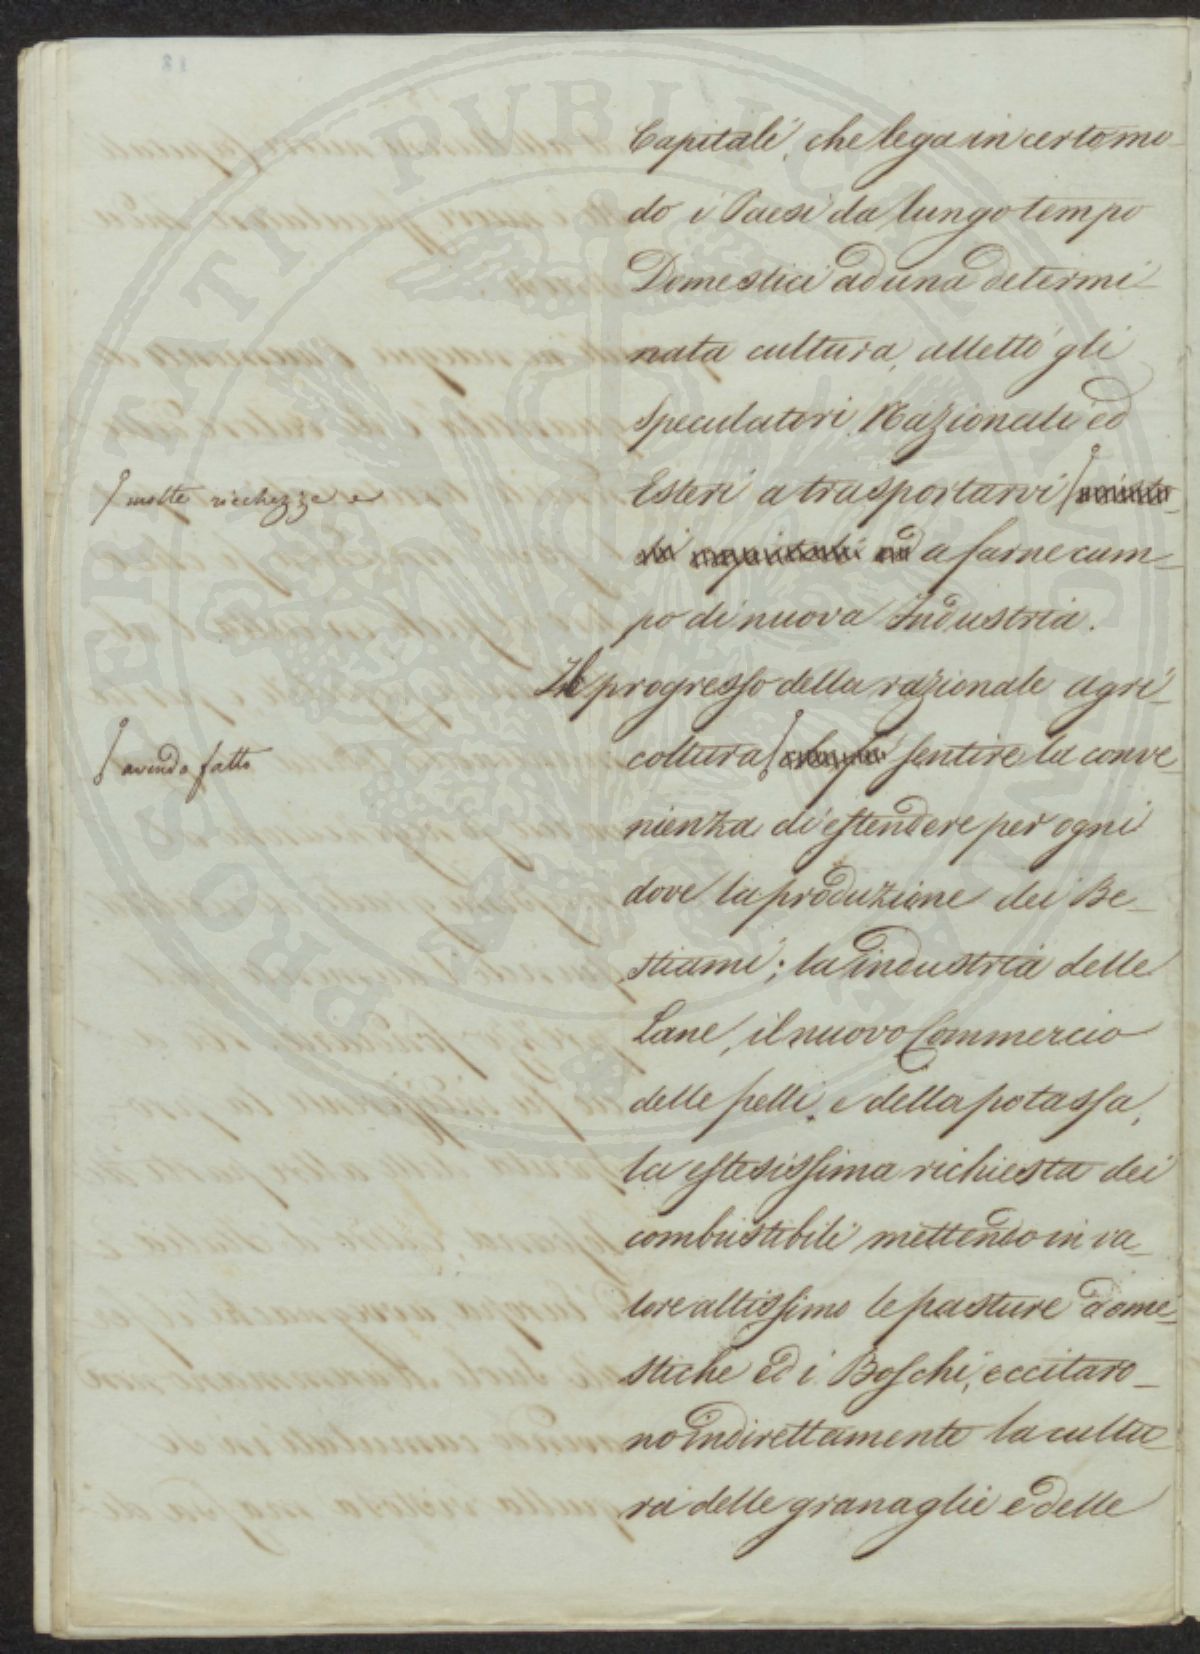 Capitali, che lega in certo mo-
do i Paesi da lungo tempo
Domestici ad una determi-
nata cultura, allettò gli
speculatori Nazionali ed
molte ricchezze e
Esteri a trasportarvi
ad a farne cam-
po di nuova Industria.
Il progresso della razionale agri-
avendo fatto
coltura sentire la conve-
nienza di estendere per ogni
dove la produzione dei Be-
stiami; la industria delle
Lane, il nuovo Commercio
delle pelli, e della potassa,
la estesissima richiesta dei
combustibili mettendo in va-
lore altissimo le pasture dome-
stiche ed i Boschi, eccitaro-
no indirettamente la cultu-
ra delle granaglie e delle
PROSPERITATI PUBLICAE